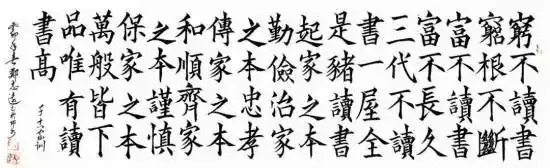 穷不讀書
窮根不斷
富不讀書
富不長久
三代不讀
書一屋全
是豬讀書
起家之本
勤儉治家
之本忠孝
傳家之本
和順齊家
之本謹慎
保家之本
萬般皆下
品唯有讀
書高